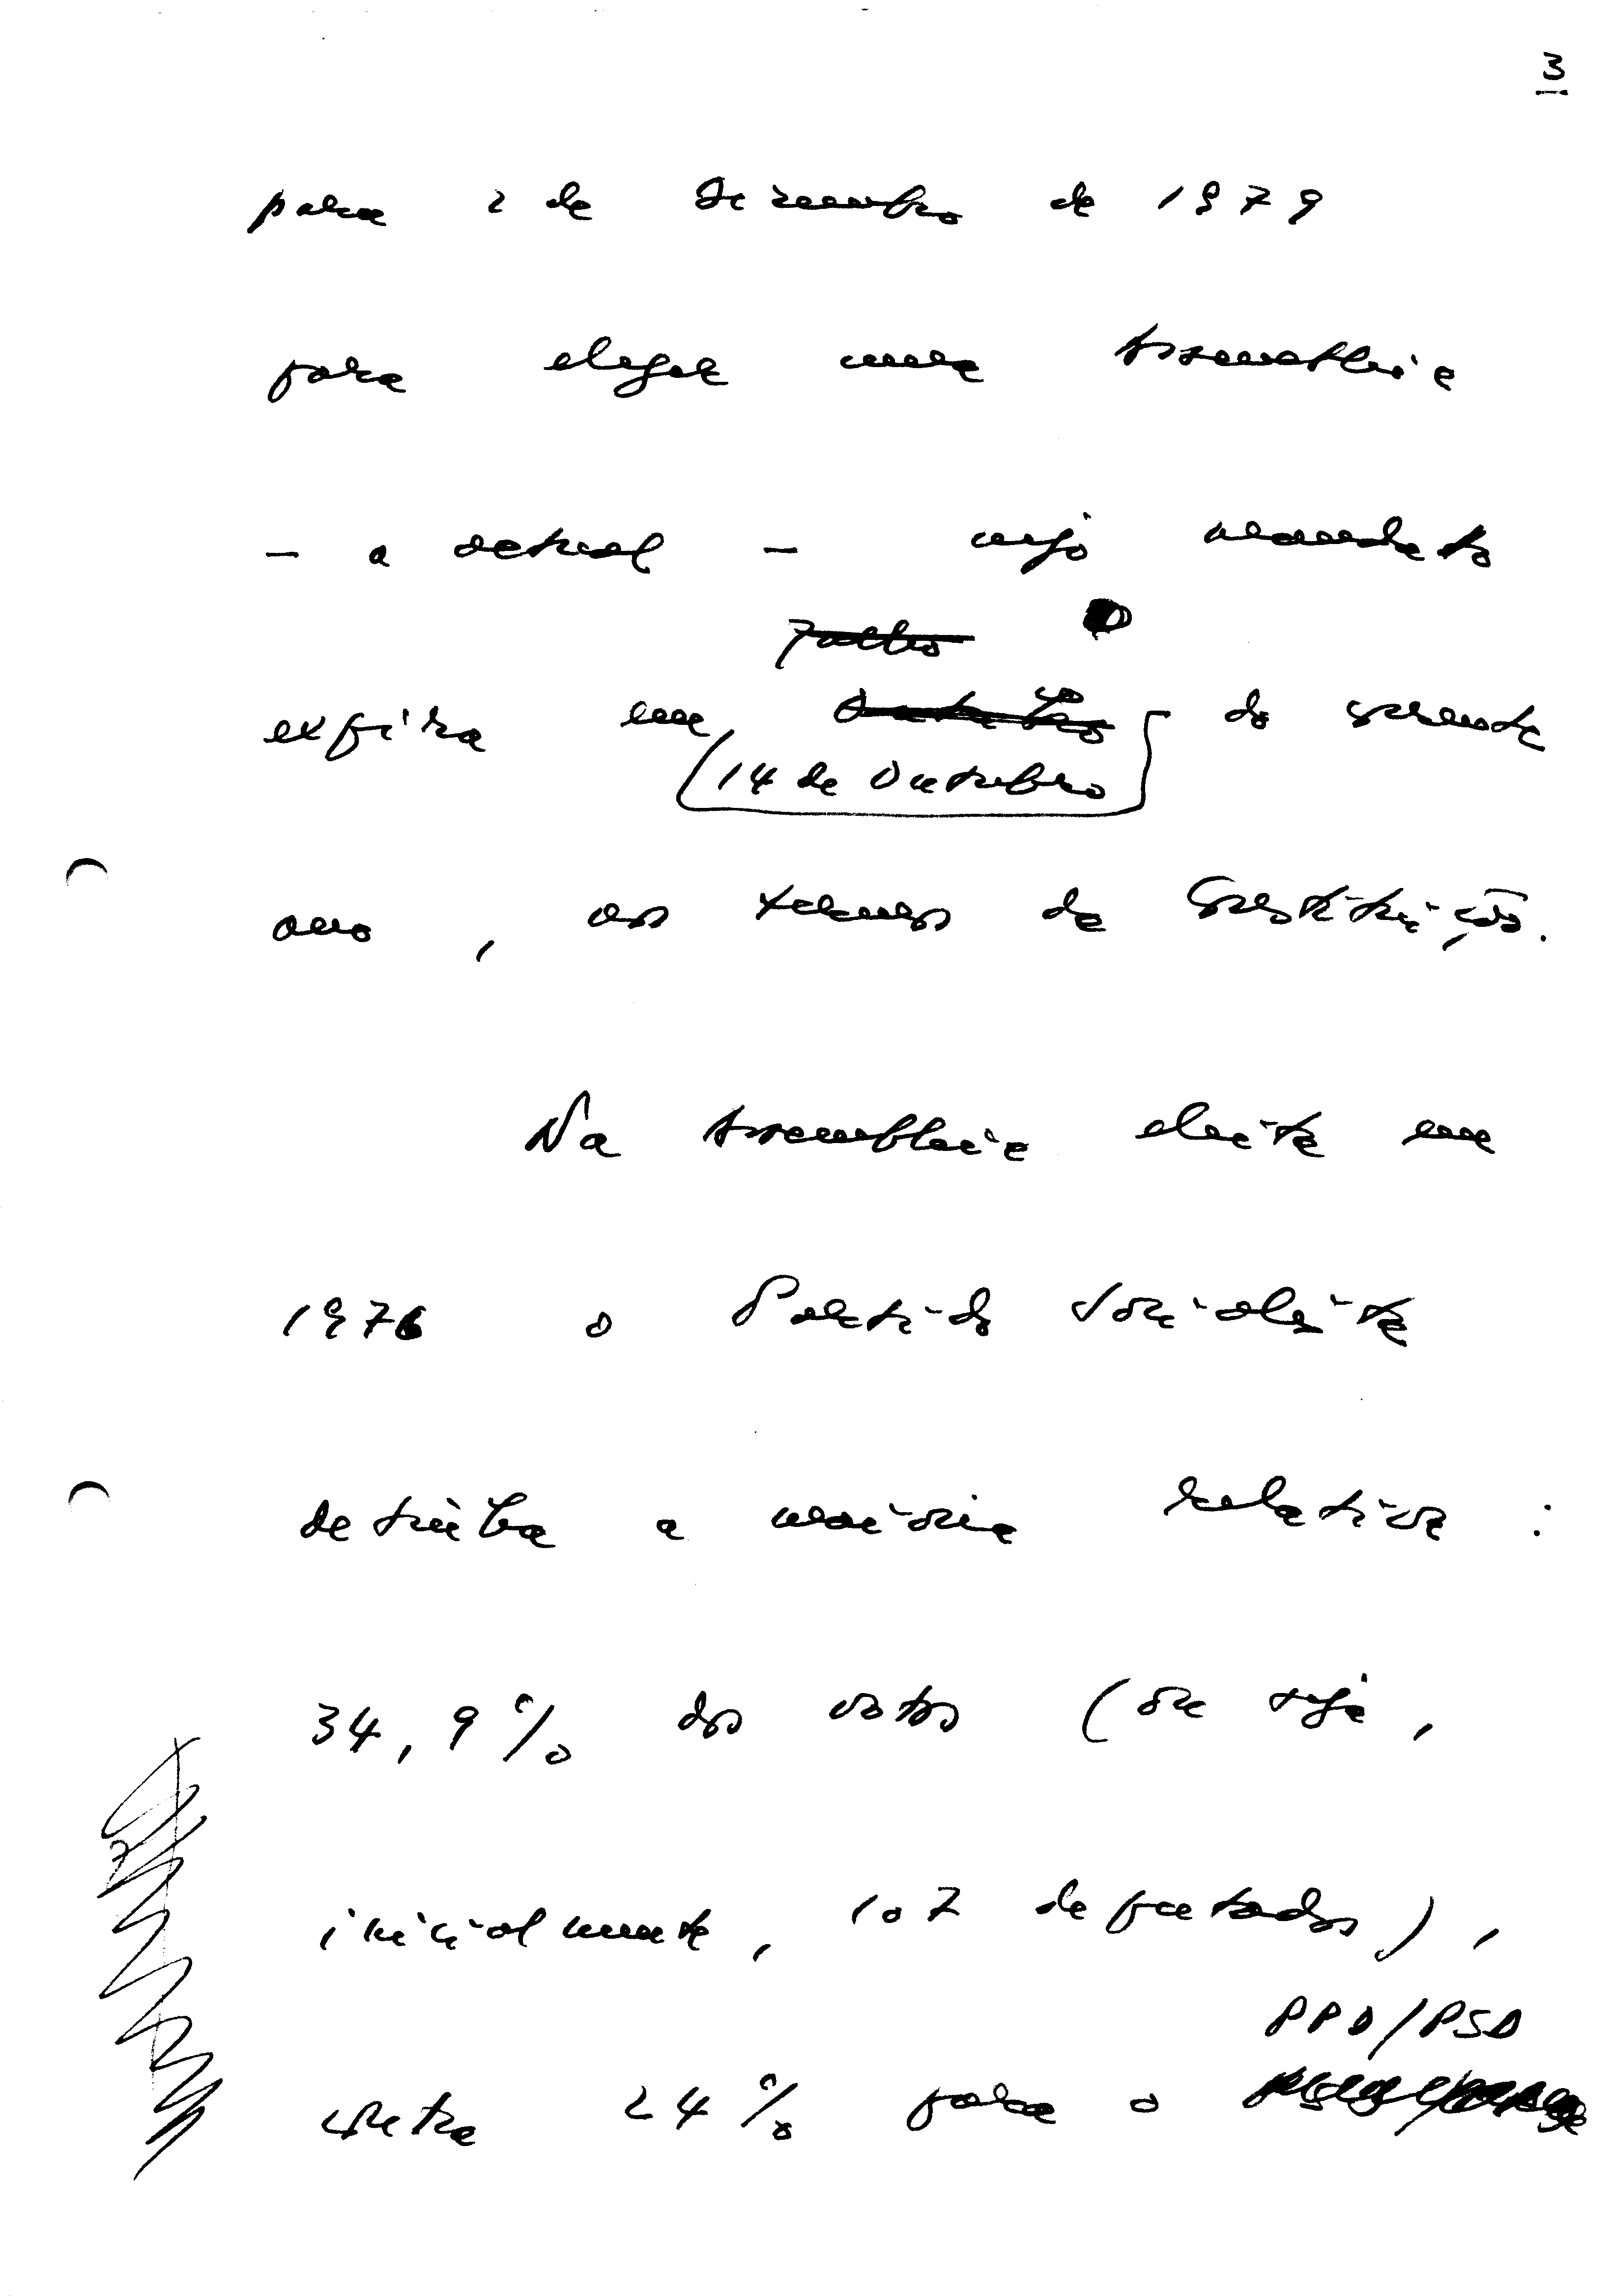 3
para 2 de Dezembro de 1979
para eleger uma Assembleia
- a actual - cujo mandato
Julho
expira em Outubro do corrente
14 de Outubro
ano, nos termos da Constituição.
Na Assembleia eleita em
1976 o Partido Socialista
detinha a maioria relativa:
34,9% dos votos (ou seja,
inicialmente, 107 deputados),
PPD/PSD
contra 24% para o